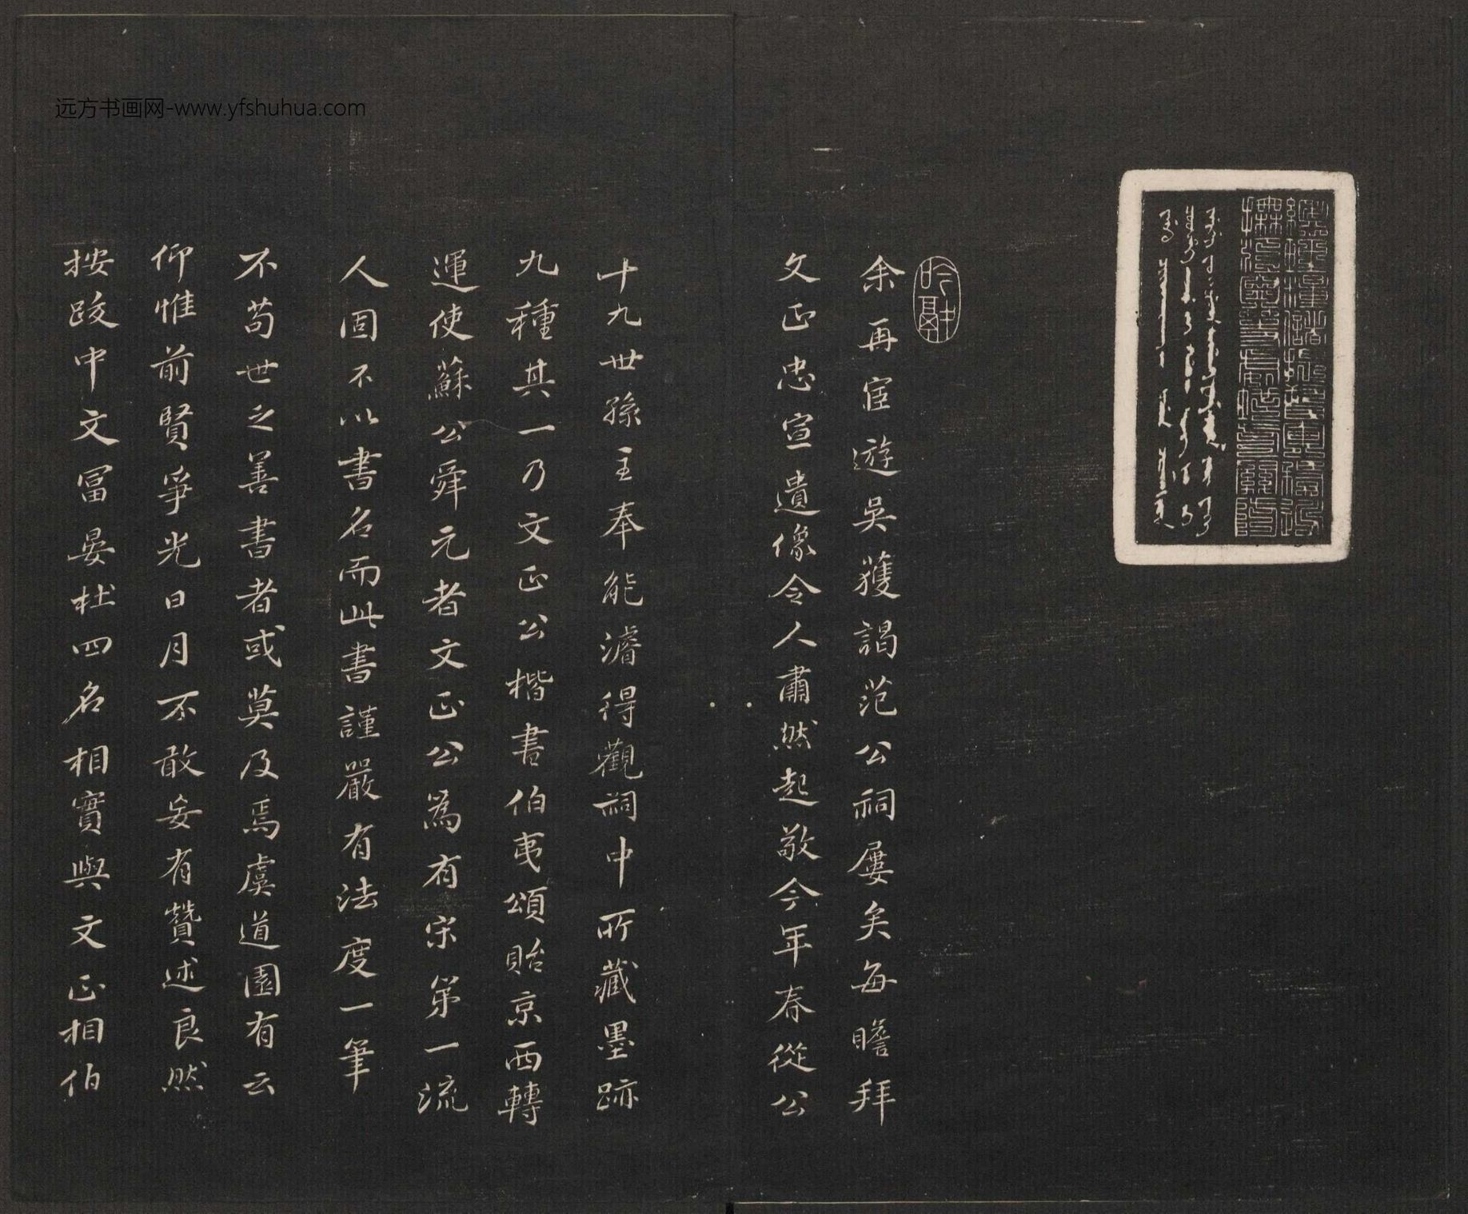 远方书画网-www.yfshuhua.com
余再宦遊吳獲謁范公祠屢矣每瞻拜
文正忠宣遺像令人肅然起敬今年春從公
十九世孫主奉能濬得觀祠中所藏墨跡
九種其一乃文正公楷書伯夷頌貽京西轉
運使蘇公舜元者文正公為有宋第一流
人固不以書名而此書謹嚴有法度一筆
不苟世之善書者或莫及焉虞道園有云
仰惟前賢爭光日月不敢妄有贊述良然
按跋中文冨晏杜四名相實與文正相伯